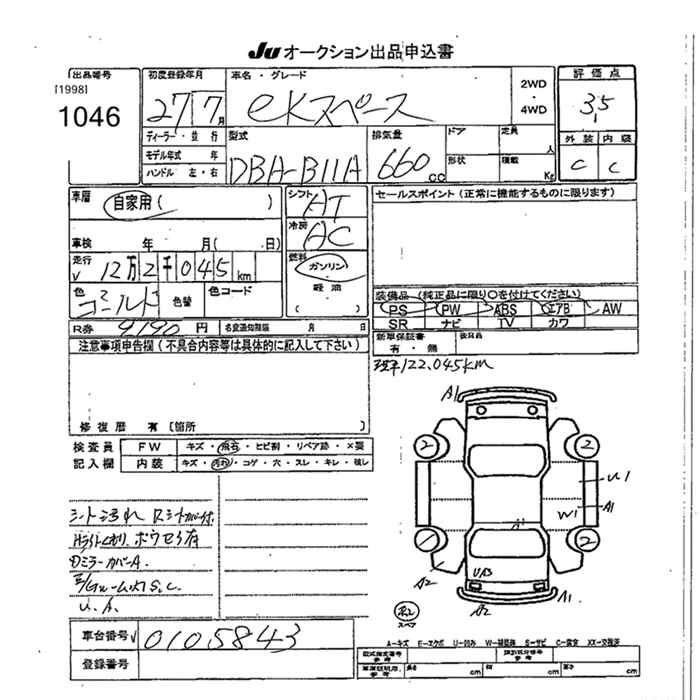 JU オークション出品申込書
出品番号
[1998]
1046
初度登録年月
27 / 7月
車名・グレード
eKスペース
2WD
・
4WD
評価点
3,5
ディーラー・並行
モデル年式 年
ハンドル 左・右
型式
DBA-B11A
排気量
660 cc
ドア
形状
定員 人
積載 Kg
外装 内装
C C
車歴
自家用 ( )
シフト
AT
セールスポイント (正常に機能するものに限ります)
車検 年 月( 日)
冷房
AC
走行
√ 12万2千045km
燃料
ガソリン
軽油
( )
色
ゴールド
色替
色コード
装備品 (純正品に限り○を付けてください)
PS PW ABS エアB AW
SR ナビ TV カワ
R券 9190円
名変通知期限 月 日
新車保証書
有・無
後日品
注意事項申告欄 (不具合内容等は具体的に記入して下さい)
122.045km
修復歴 有 [箇所 ]
検査員
記入欄
FW キズ・飛石・ヒビ割・リペア跡・×要
内装 キズ・汚れ・コゲ・穴・スレ・キレ・破レ
シート汚れ Rシートカバー付
Hライトくもり、ボウセイ有
DミラーカバーA.
S.C.
U.A.
A1
2 2
U1
A1
W1
2
A2
UA3
A2
A1
スペア
車台番号 √ 0105843
登録番号
A-キズ E-エクボ U-凹み W-補修跡 S-サビ C-腐食 XX-交換済
型式指定番号
参考
類別区分番号
参考
車庫証明用、
参考
長さ cm 幅 cm 高さ cm